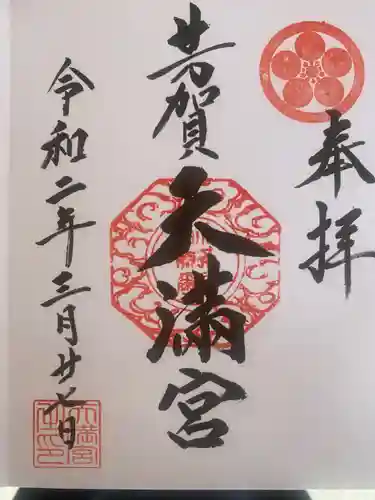 奉拝
芳賀天満宮
令和二年三月廿七日